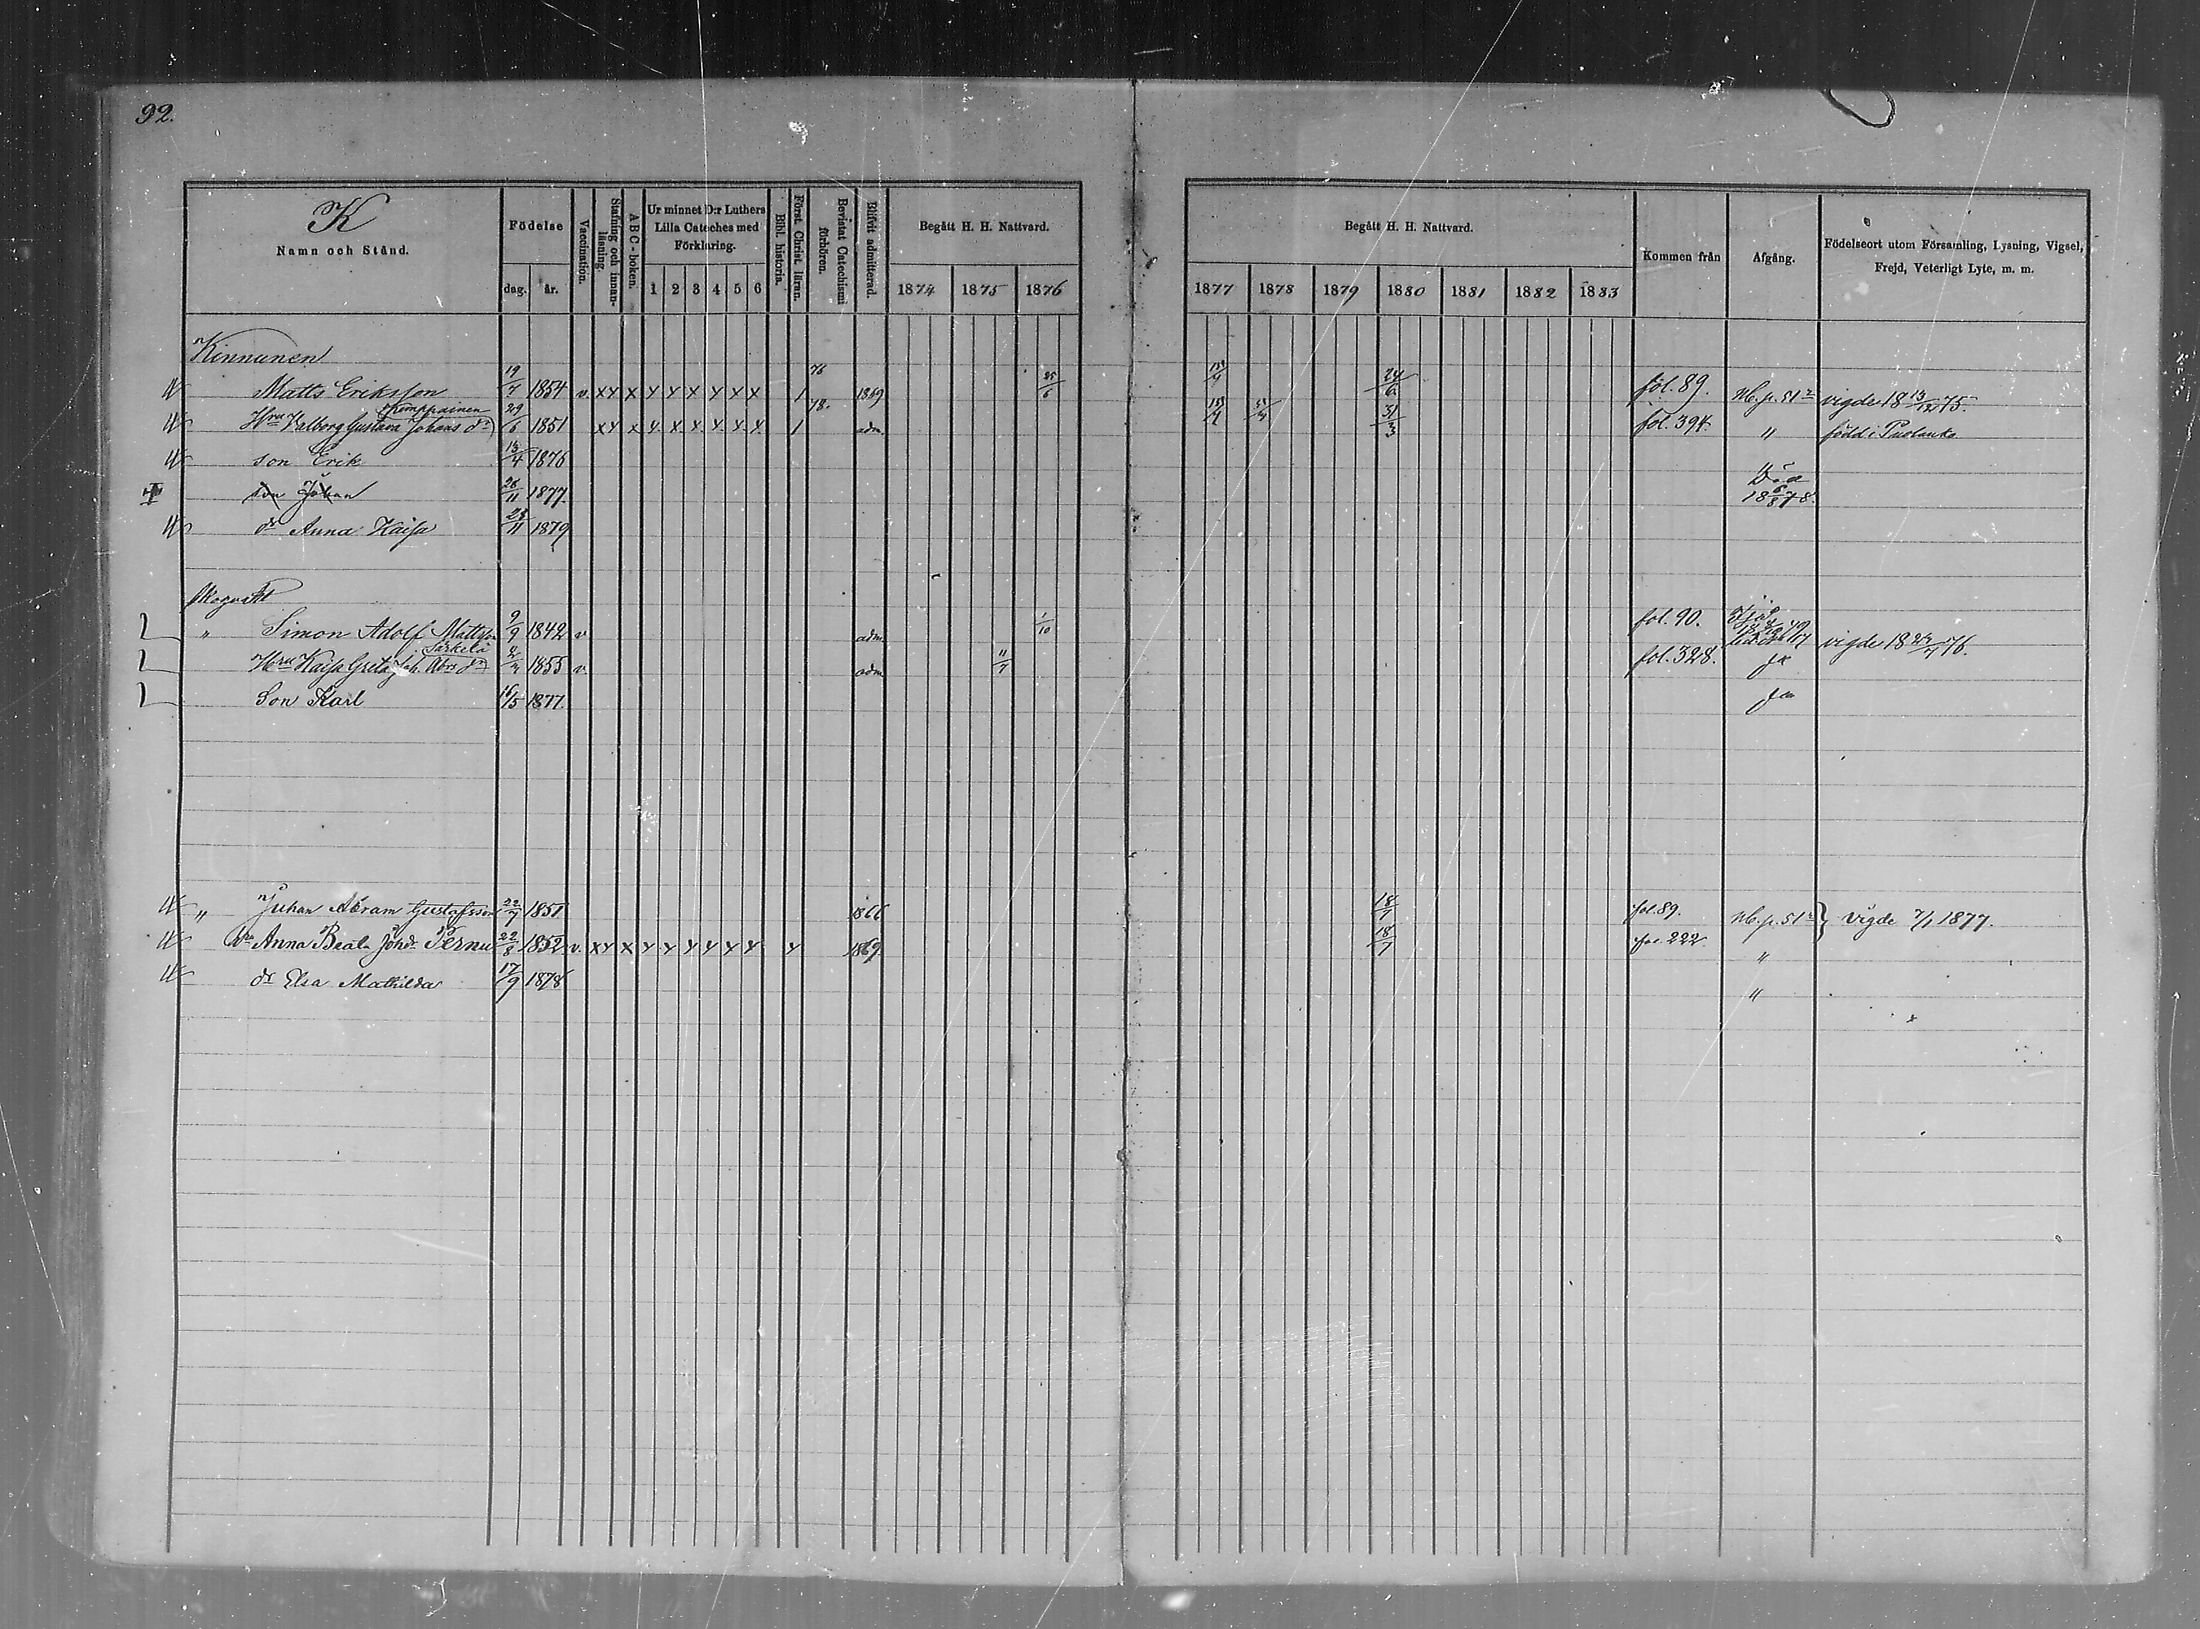 92.
K
Namn och Stånd.
Födelse
dag. år.
Vaccination.
Stafning och innanläsning.
ABC-boken.
Ur minnet D:r Luthers Lilla Cateches med Förklaring.
1 2 3 4 5 6
Bibl. historia.
Först. Christ. läran.
Bevistat Catechismi förhören.
Blifvit admitterad.
Begått H. H. Nattvard.
1874 1875 1876
Begått H. H. Nattvard.
1877 1878 1879 1880 1881 1882 1883
Kommen från
Afgång.
Födelseort utom Församling, Lysning, Vigsel, Frejd, Veterligt Lyte, m. m.
Kinnunen
Matts Eriksson 19/7 1854 v. x x x x x x x x x 1 76 1869 25/6 15/4 24/6 fol. 89. Nb. p. 51 vigde 18 13/12 75.
Hru Valborg Gustava Johans dr Kemppainen 29/6 1851 x x x x x x x x x 1 78. adm. 15/4 31/3 fol. 394. " född i Puolanko
son Erik 13/4 1876
son Johan 26/11 1877. Död 18 6/8 78
dr Anna Kaisa 23/11 1879
Skogvakt
" Simon Adolf Mattss. 9/9 1842 v adm. 1/10 fol. 90. vigde 18 22/7 76.
Hru Kaisa Greta Joh. Abrs dr Särkelä 1855 v. adm fol. 328.
Son Karl 16/5 1877.
" Juhan Abram Gustafsson 22/7 1851 1866 18/7 fol. 89. Nb. p. 51 } vigde 7/1 1877.
Hru Anna Beata Johdr Pernu 22/8 1852 v. x x x x x x x x x x 1869. 18/7 fol. 222 "
dr Elsa Mathilda 17/9 1878 "